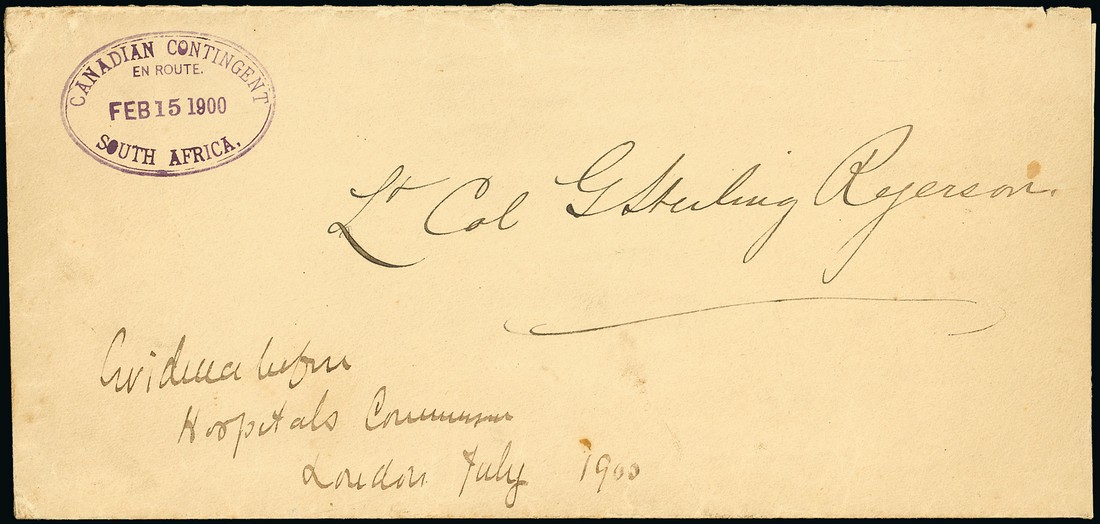 CANADIAN CONTINGENT
EN ROUTE.
FEB 15 1900
SOUTH AFRICA.
Lt Col G Sterling Ryerson.
Evidence before
Hospitals Commission
London July 1900